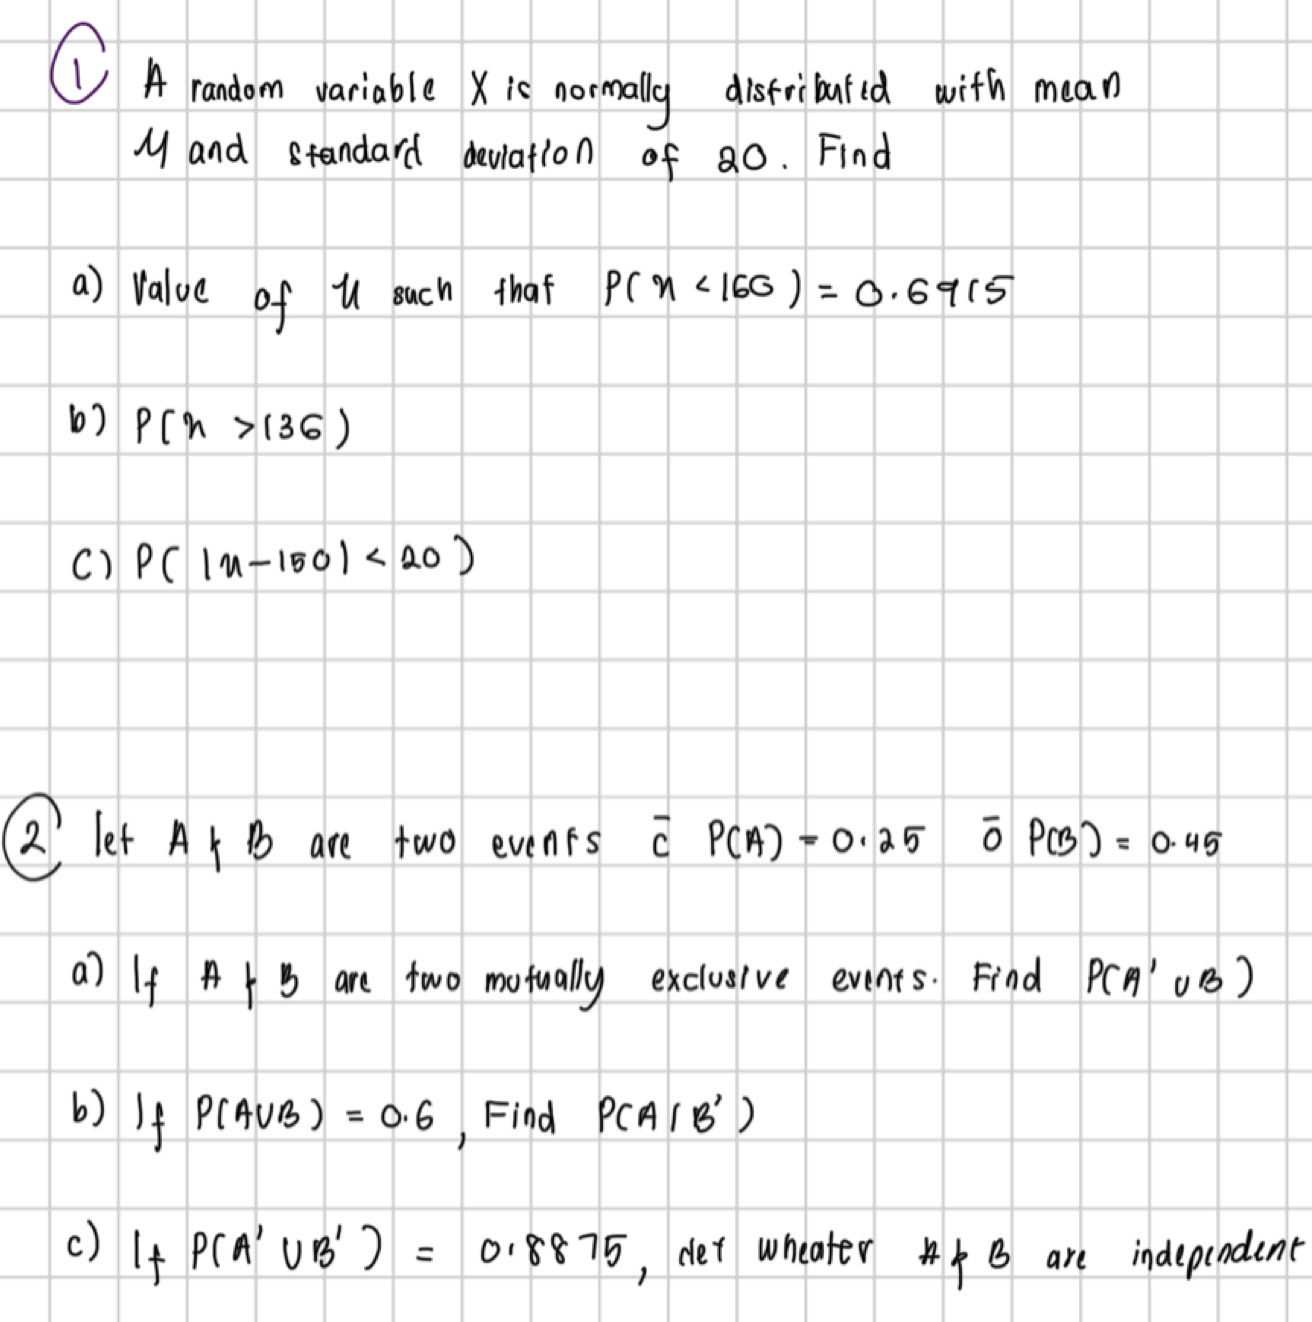 ① A random variable X is normally distributed with mean
μ and standard deviation of 20. Find
a) Value of μ such that P(x < 166) = 0.6915
b) P(x > 136)
c) P(|x-150| < 20)
② let A & B are two events c̄ P(A) = 0.25 ō P(B) = 0.45
a) If A & B are two mutually exclusive events. Find P(A' ∪ B)
b) If P(A∪B) = 0.6, Find P(A/B')
c) If P(A' ∪ B') = 0.8875, det wheater A & B are independent